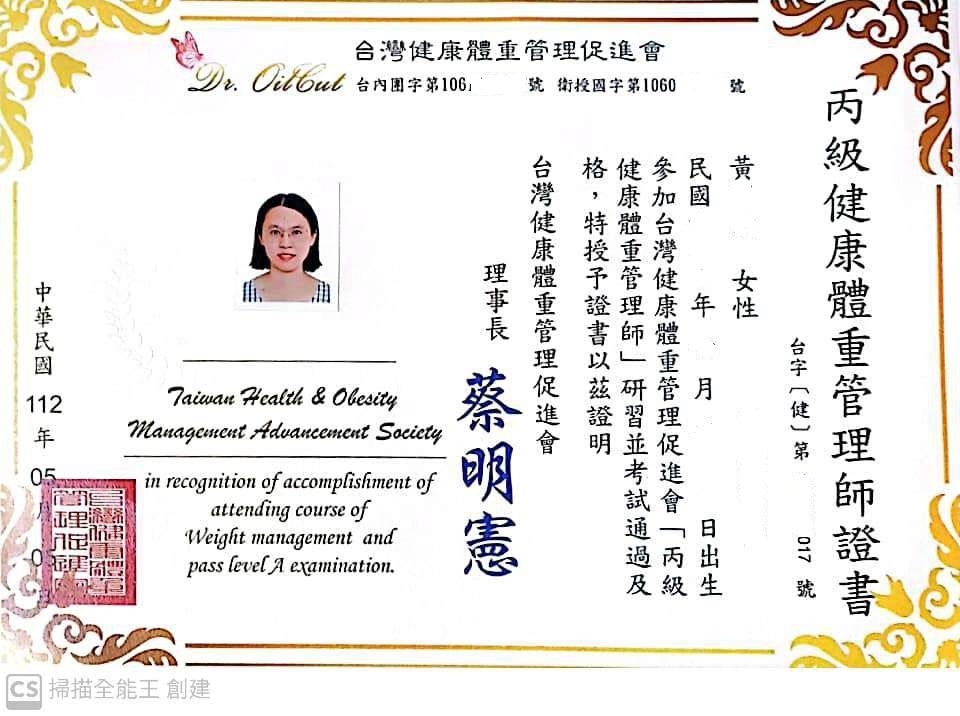 台灣健康體重管理促進會
Dr. OilCut 台內團字第106 號 衛授國字第1060 號
丙級健康體重管理師證書
台字〔健〕第 017 號
黃 女性
民國 年 月 日出生
參加台灣健康體重管理促進會「丙級
健康體重管理師」研習並考試通過及
格，特授予證書以茲證明
台灣健康體重管理促進會
理事長 蔡明憲
Taiwan Health & Obesity
Management Advancement Society
in recognition of accomplishment of
attending course of
Weight management and
pass level A examination.
中華民國 112 年 05 月
CS 掃描全能王 創建